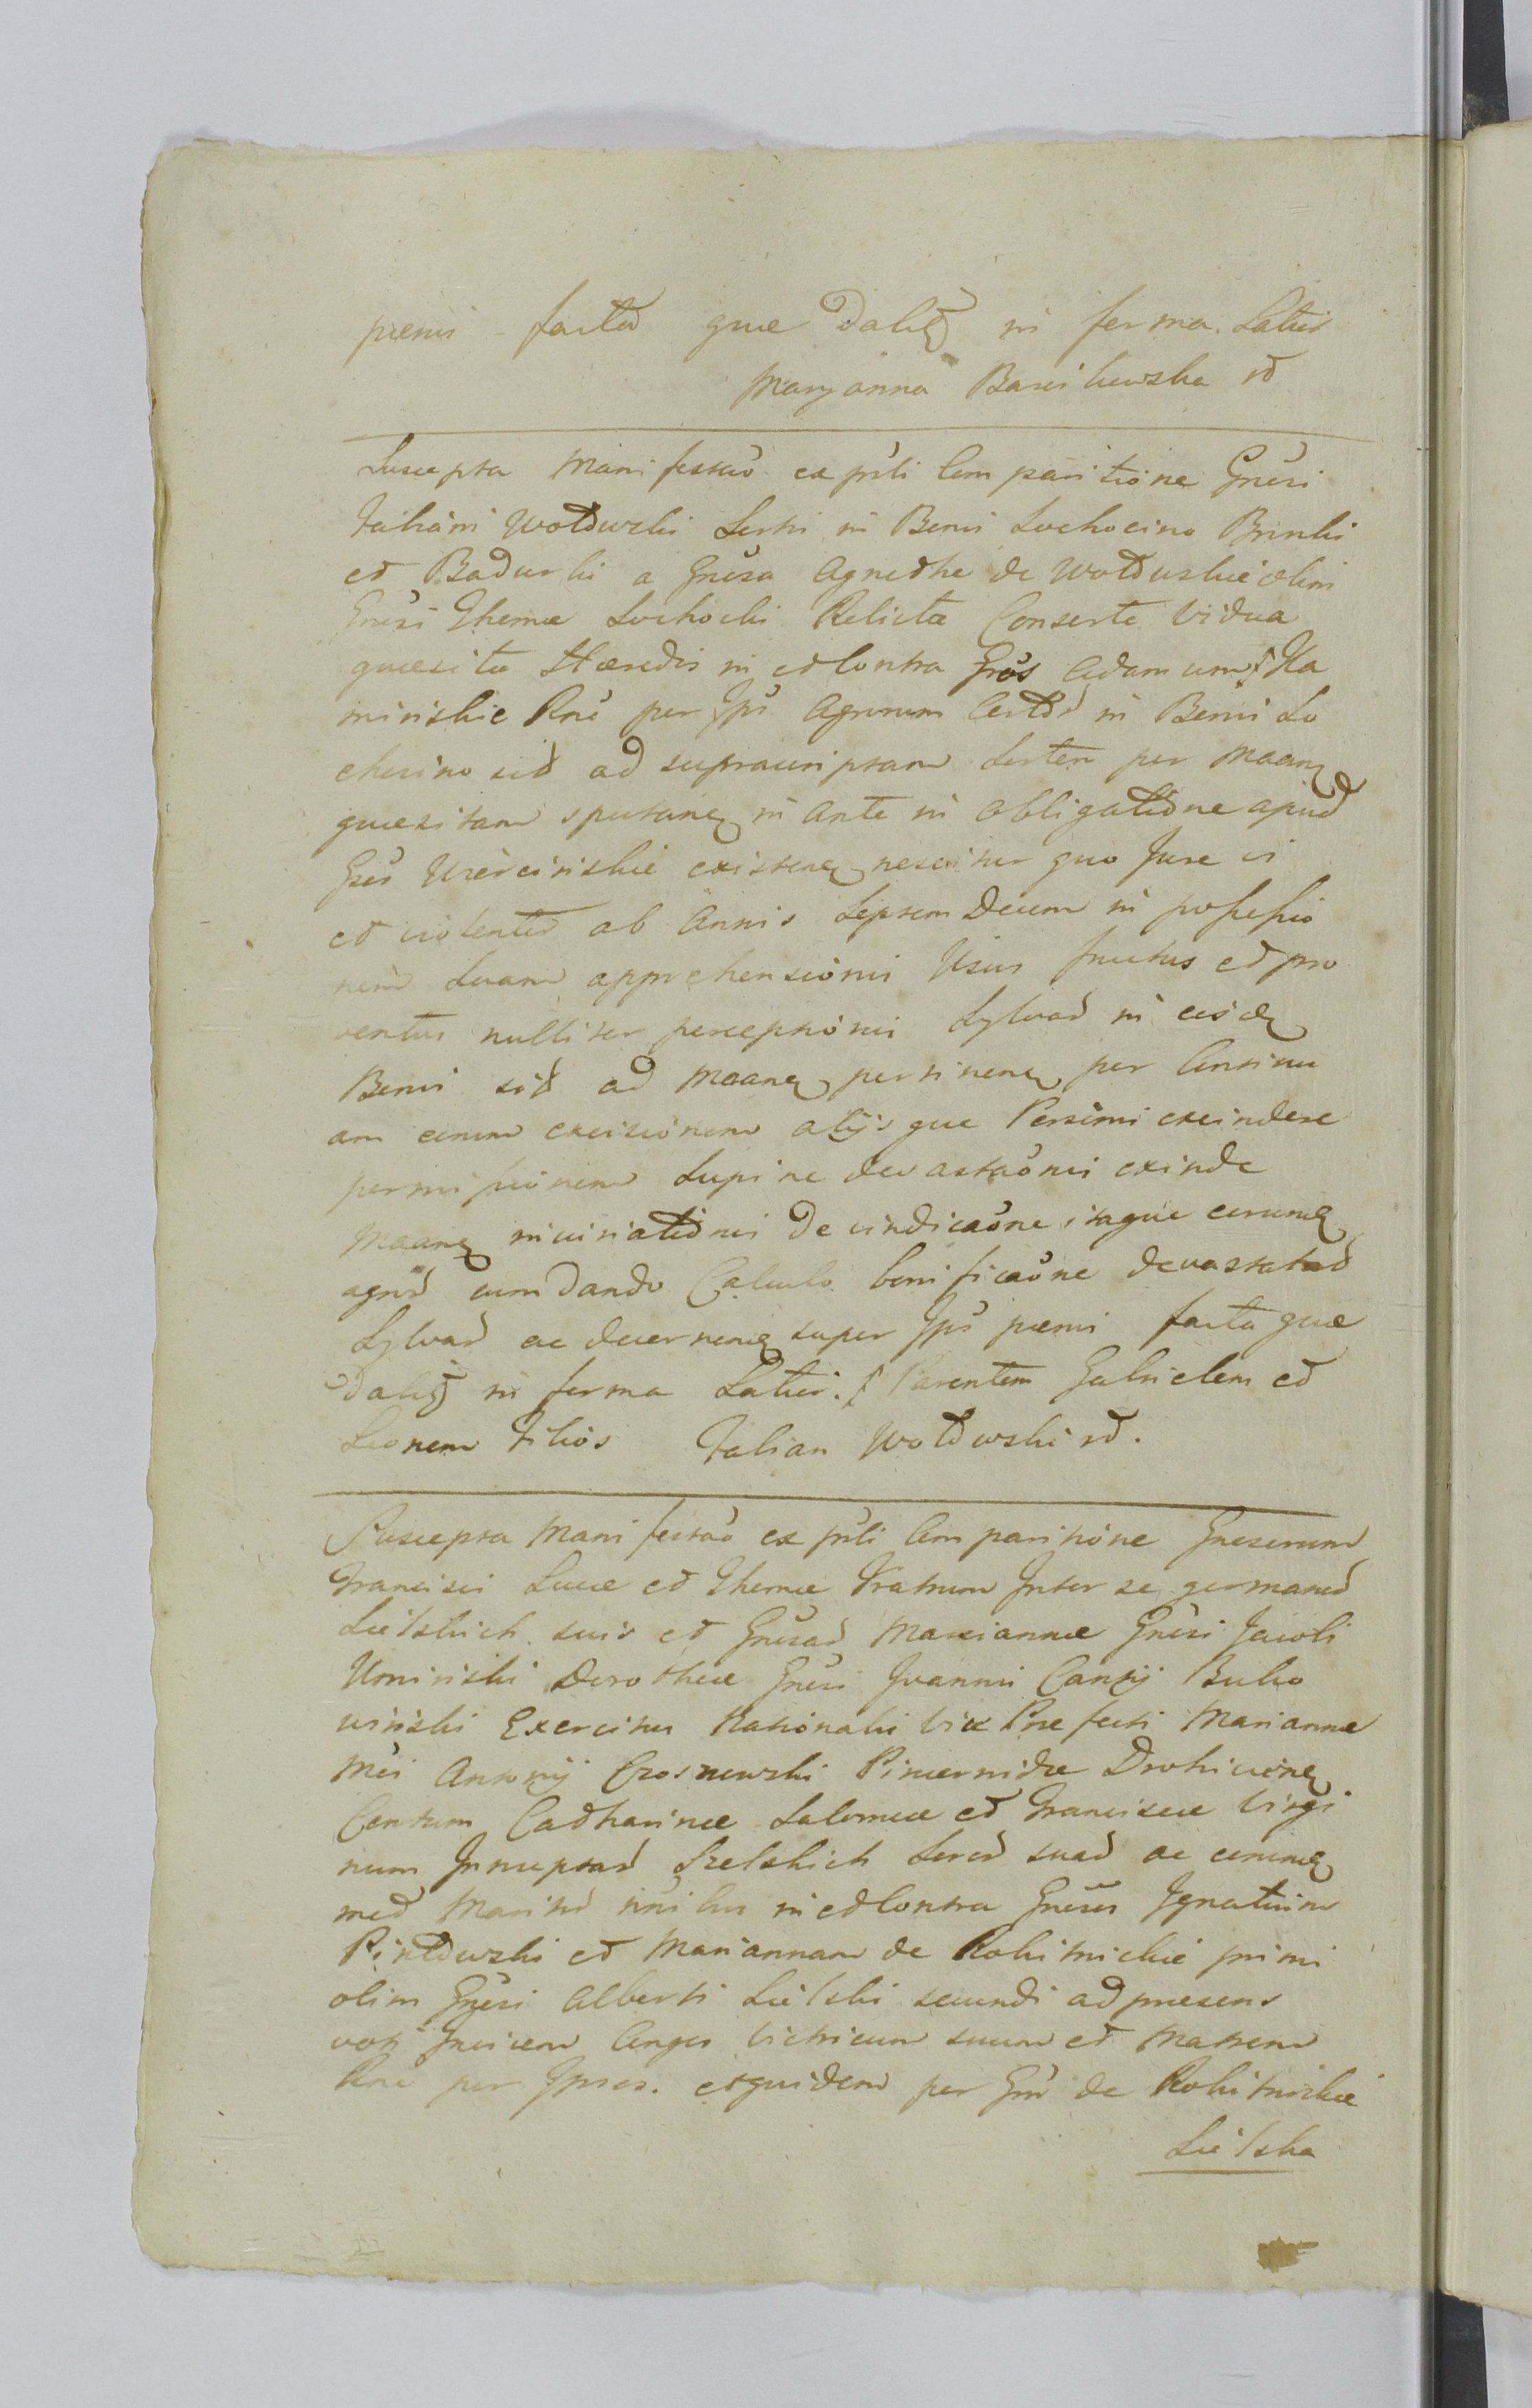 pœnis factà quæ Dalig in forma Latiis
Maryanna Barcikowska rd
Suscepta Manifestaõ ex pñti Comparitione Gñrsi
Juliani Wotowski Sortis in Bonis Lochocino Brinki
et Badurki a Gnrsa Agnethe de Wotowskie olim
Gnrsi Thomæ Lochocki Relicta Consorte vidua
quæsitæ Hæredis in et Contra Gros Adamum Ka
minskie Rne per Ipś Agrorum Certor in Bonis Lo
chocino sid ad suprascriptam Sortem per Maang
quæsitam spectang in ante in obligatione apud
Gres existeng nescitur quo Jure vi
et violenter ab Annis Septem Decem in possessio
nem Suam apprehensionis Usus fructus et pro
ventus nulliter perceptionis Sylvar in eisdg
Bonis sid ad Maang pertineng per Continu
am earum excisionem alijsque Personis excindere
permissionem Supine devastaõnis exinde
Maang iniuriationis De vindicaõne itaque earumg
agror cum dando Calculo bonificaõne devastatar
Sylvar ac decerneng super Ipś pœnis facta quæ
Dalig in forma Latiis. Parentem Gabrielem et
Leonem Filios Julian Wotowski rd.
Suscepta Manifestaõ ex pñti Comparitione Gnrsorum
Francisci Lucæ et Thomæ Fratrum Inter se germanor
Sielskich suis et Gnrsar Mariannæ Gnrsi Jacobi
Uminski Dorotheæ Gnrsi Joannis Cantij Buko
winski Exercitus Nationalis Vice Præfecti Mariannæ
Mci Antonij Czosnowski Pincernidæ Drohicieng
Contum Catharinæ Salomeæ et Franciscæ Virgi
num Innuptar Sielskich Soror suar ac earumg
med Maritor nñibus in et Contra Gnrsos Ignatium
et Mariannam de Rokitnickie primi
olim Gnrsi Alberti Sielski secundi ad præsens
voti Invicem Conges Vitricum suum et Matrem
Rne per Ipsos. etquidem per Gñ de Rokitnickie
Sielska